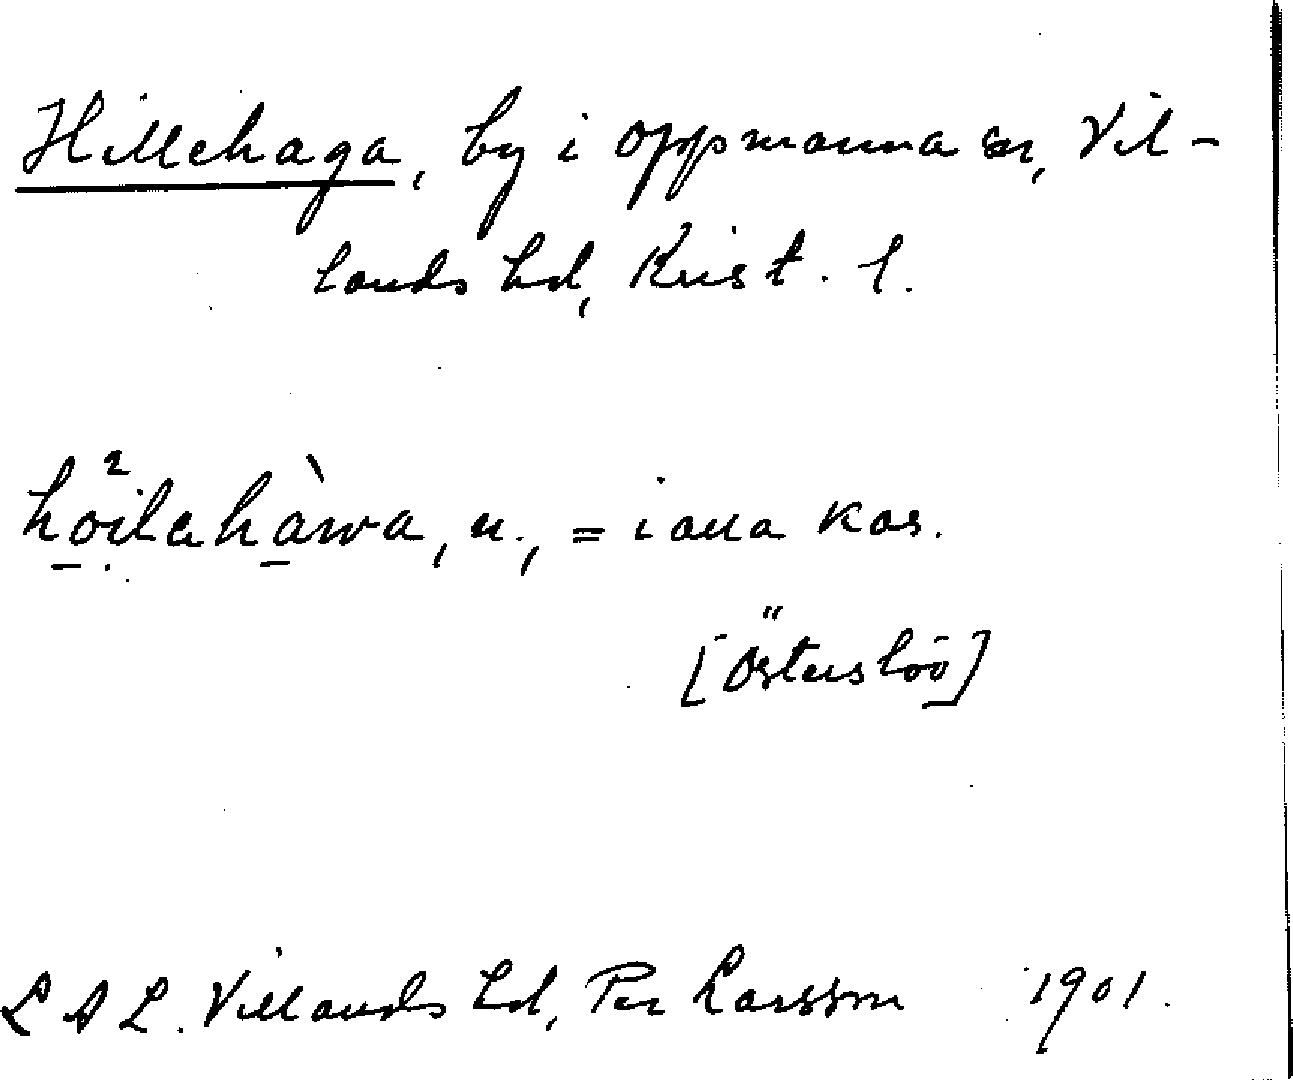 Hillehaga, by i Oppmanna sn, Vil-
lands hd, Krist. l.
hö²ilehàwa, n., = i alla kas.
[Österslöv]
LAL. Villands hd, Per Larsson 1901.